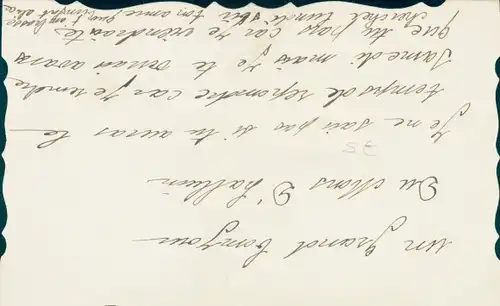 un grand bonjour
Du Mons D'halluin
75
Je ne sais pas si tu auras le
temps de repondre car Je rentre
Samedi mais Je te dirais avans
que tu pars car Je viendraite
chercher lundi soir ton amie